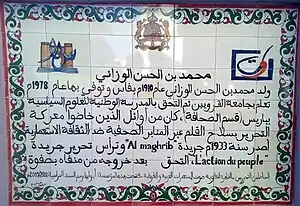 محمد بن الحسن الوزاني
ولد محمد بن الحسن الوزاني عام 1910م بفاس وتوفي بها عام 1978م
تعلم بجامعة القرويين ثم التحق بالمدرسة الوطنية للعلوم السياسية
بباريس قسم الصحافة. كان من أوائل الذين خاضوا معركة
التحرير بسلاح القلم عبر المنابر الصحفية ضد الثقافة الاستعمارية
اصدر سنة 1933م جريدة "Al maghrib" وترأس تحرير جريدة
"L'action du peuple" التحق بعد خروجه من منفاه بصفوة